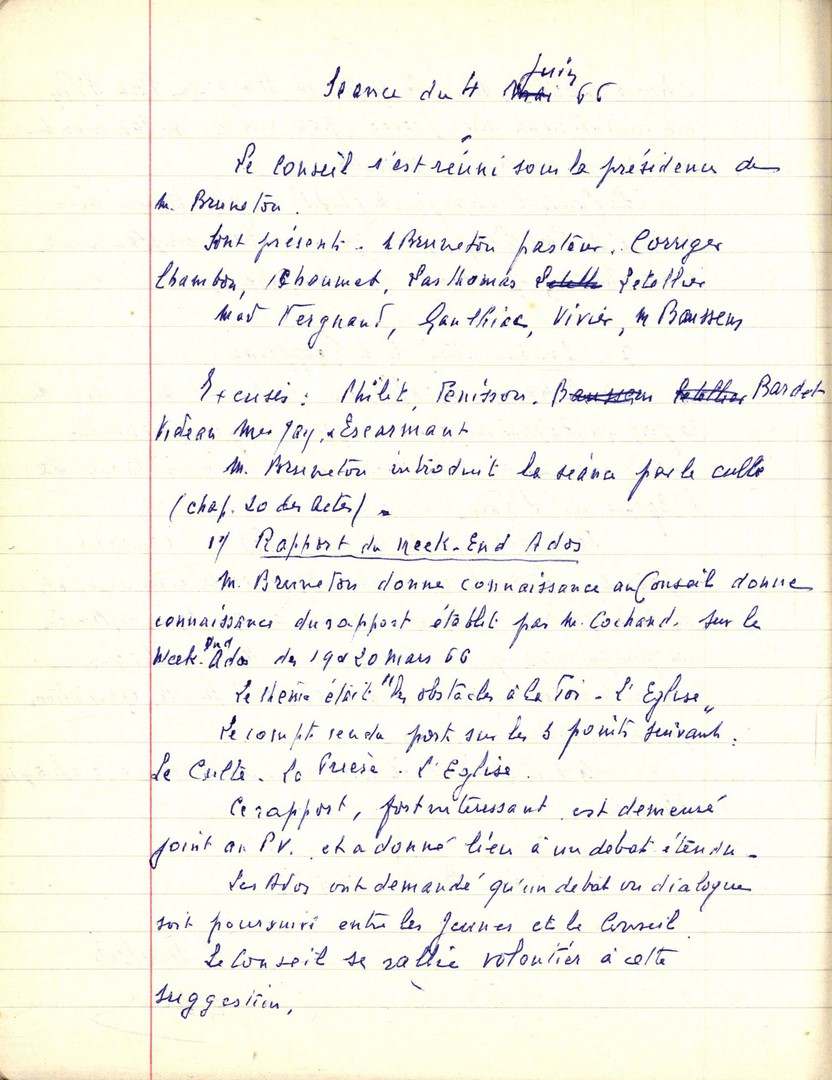 Séance du 4 ~~mai~~ Juin 66
Le Conseil s'est réuni sous la présidence de
M. Bruneton.
Sont présents - M Bruneton pasteur. Corriger
Chambon, Choumet, Lasthomas ~~Letell~~ Letellier
Mad Vergnaud, Gauthier, Vivier, M Baussens
Excusés : Philit, Tenisson. ~~Baussens~~ ~~Letellier~~ Bardet
Videau Mes Jay, & Escarmant
M. Bruneton introduit la séance par le culte
(chap. 20 des Actes) -
1°/ Rapport du Week-End Ados
M. Bruneton donne connaissance au Conseil donne
connaissance du rapport établit par M. Cochand. sur le
Week-End Ados des 19 & 20 mars 66
Le thème était "Les obstacles à la Foi - L'Eglise"
Le compte rendu porte sur les 3 points suivants :
Le Culte - La Prière - L'Eglise.
Ce rapport, fort intéressant est demeuré
joint au PV. et a donné lieu à un debat étendu -
Les Ados ont demandé qu'un debat ou dialogue
soit poursuivi entre les Jeunes et le Conseil
Le Conseil se rallie volontier à cette
suggestion,